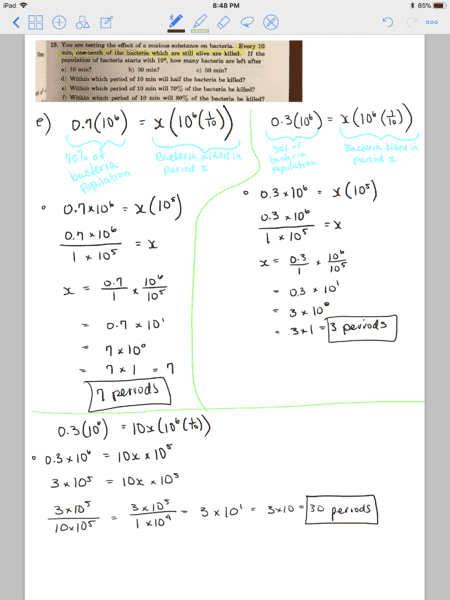 iPad
8:48 PM
85%
19. You are testing the effect of a noxious substance on bacteria. Every 10
min, one-tenth of the bacteria which are still alive are killed. If the
population of bacteria starts with 10⁶, how many bacteria are left after
a) 10 min? b) 30 min? c) 50 min?
d) Within which period of 10 min will half the bacteria be killed?
e) Within which period of 10 min will 70% of the bacteria be killed?
f) Within which period of 10 min will 80% of the bacteria be killed?
e) 0.7(10⁶) = x(10⁶(1/10))
70% of bacteria population
Bacteria killed in period x
0.7×10⁶ = x(10⁵)
0.7 × 10⁶ / 1 × 10⁵ = x
x = 0.7/1 × 10⁶/10⁵
= 0.7 × 10¹
= 7 × 10⁰
= 7 × 1 = 7
7 periods
0.3(10⁶) = x(10⁶(1/10))
30% of bacteria population
Bacteria killed in period x
0.3×10⁶ = x(10⁵)
0.3 × 10⁶ / 1 × 10⁵ = x
x = 0.3/1 × 10⁶/10⁵
= 0.3 × 10¹
= 3 × 10⁰
= 3×1 = 3 periods
0.3(10⁶) = 10x(10⁶(1/10))
0.3×10⁶ = 10x × 10⁵
3×10⁵ = 10x × 10⁵
3×10⁵ / 10×10⁵ = 3×10⁵ / 1×10⁴ = 3×10¹ = 3×10 = 30 periods